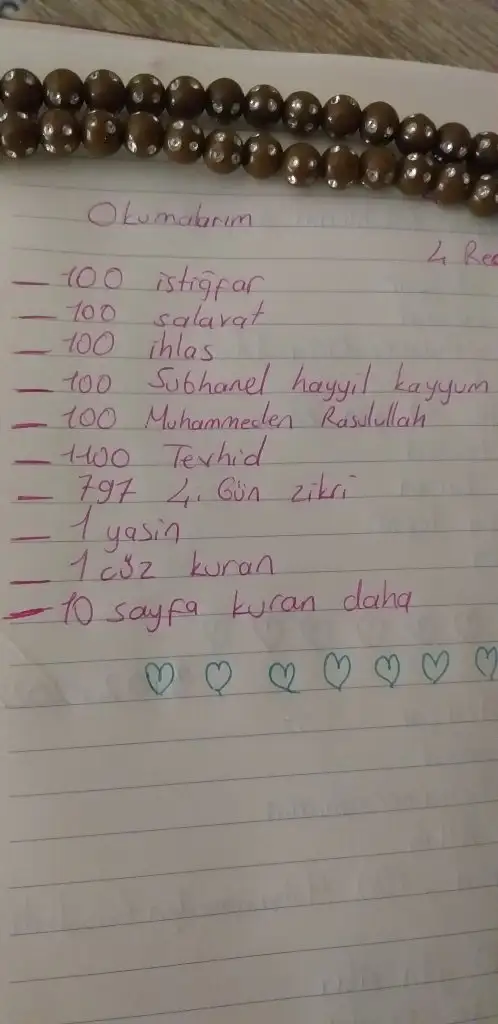 Okumalarım
4 Rec
— 100 istiğfar
— 100 salavat
— 100 ihlas
— 100 Subhanel hayyil kayyum
— 100 Muhammeden Rasulullah
— 1100 Tevhid
— 797 4. Gün zikri
— 1 yasin
— 1 cüz kuran
— 10 sayfa kuran daha